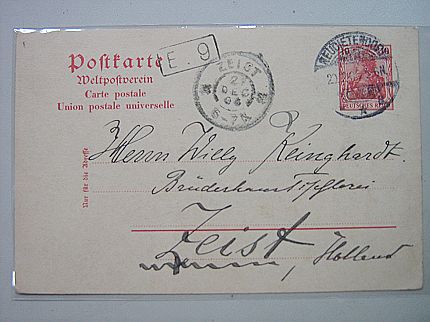 Postkarte
Weltpostverein
Carte postale
Union postale universelle
E. 9
ZEIST
27
DEC
04
6-7N
NEUDIETENDORF
10 10
DEUTSCHES REICH
Nur für die Adresse
Herrn Willy Reinghardt.
Brüderhaus Tischlerei
Zeist
Holland